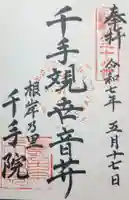 奉拝 令和七年 五月十七日
千手観世音菩薩
根岸乃里
千手院